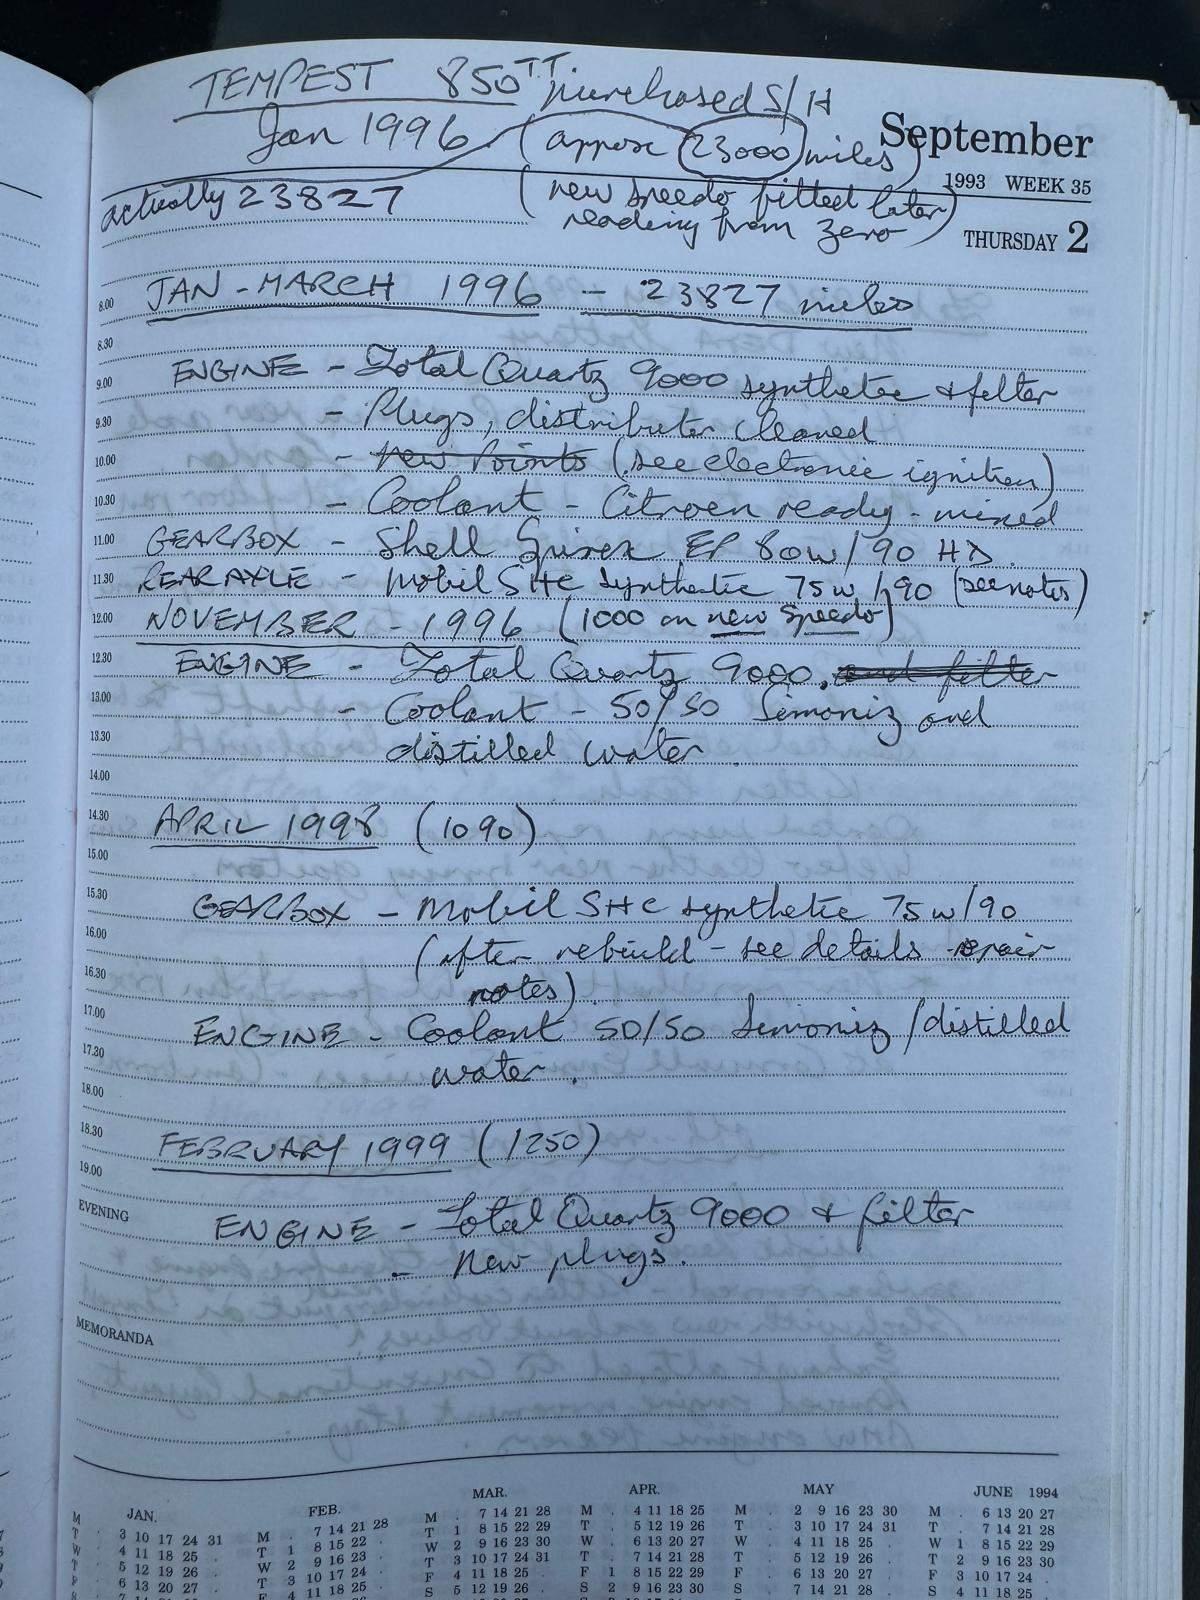 TEMPEST 850TT purchased S/H
Jan 1996 (approx 23000 miles)
September
1993 WEEK 35
actually 23827
(new speedo fitted later
reading from zero)
THURSDAY 2
8.00 JAN - MARCH 1996 - 23827 miles
8.30
9.00 ENGINE - Total Quartz 9000 synthetic & filter
9.30 - Plugs, distributer cleaned
10.00 - new points (see electronic ignition)
10.30 - Coolant - Citroen ready-mixed
11.00 GEARBOX - Shell Spirex EP 80w/90 HD
11.30 REAR AXLE - Mobil SHC synthetic 75w/90 (see notes)
12.00 NOVEMBER - 1996 (1000 on new speedo)
12.30 ENGINE - Total Quartz 9000, and filter
13.00 - Coolant - 50/50 Simoniz and
13.30 distilled water
14.00
14.30 APRIL 1998 (1090)
15.00
15.30 GEARBOX - Mobil SHC synthetic 75w/90
16.00 (after rebuild - see details repair
16.30 notes).
17.00 ENGINE - Coolant 50/50 Simoniz/distilled
17.30 water.
18.00
18.30 FEBRUARY 1999 (1250)
19.00
EVENING ENGINE - Total Quartz 9000 & filter
- New plugs.
MEMORANDA
JAN. FEB. MAR. APR. MAY JUNE 1994
M . 3 10 17 24 31 M . 7 14 21 28 M . 7 14 21 28 M . 4 11 18 25 M . 2 9 16 23 30 M . 6 13 20 27
T . 4 11 18 25 . T 1 8 15 22 . T 1 8 15 22 29 T . 5 12 19 26 T . 3 10 17 24 31 T . 7 14 21 28
W . 5 12 19 26 . W 2 9 16 23 . W 2 9 16 23 30 W . 6 13 20 27 W . 4 11 18 25 . W 1 8 15 22 29
T . 6 13 20 27 . T 3 10 17 24 . T 3 10 17 24 31 T . 7 14 21 28 T . 5 12 19 26 . T 2 9 16 23 30
F 4 11 18 25 . F 4 11 18 25 . F 1 8 15 22 29 F . 6 13 20 27 . F 3 10 17 24 .
S 5 12 19 26 . S 2 9 16 23 30 S . 7 14 21 28 . S 4 11 18 25 .